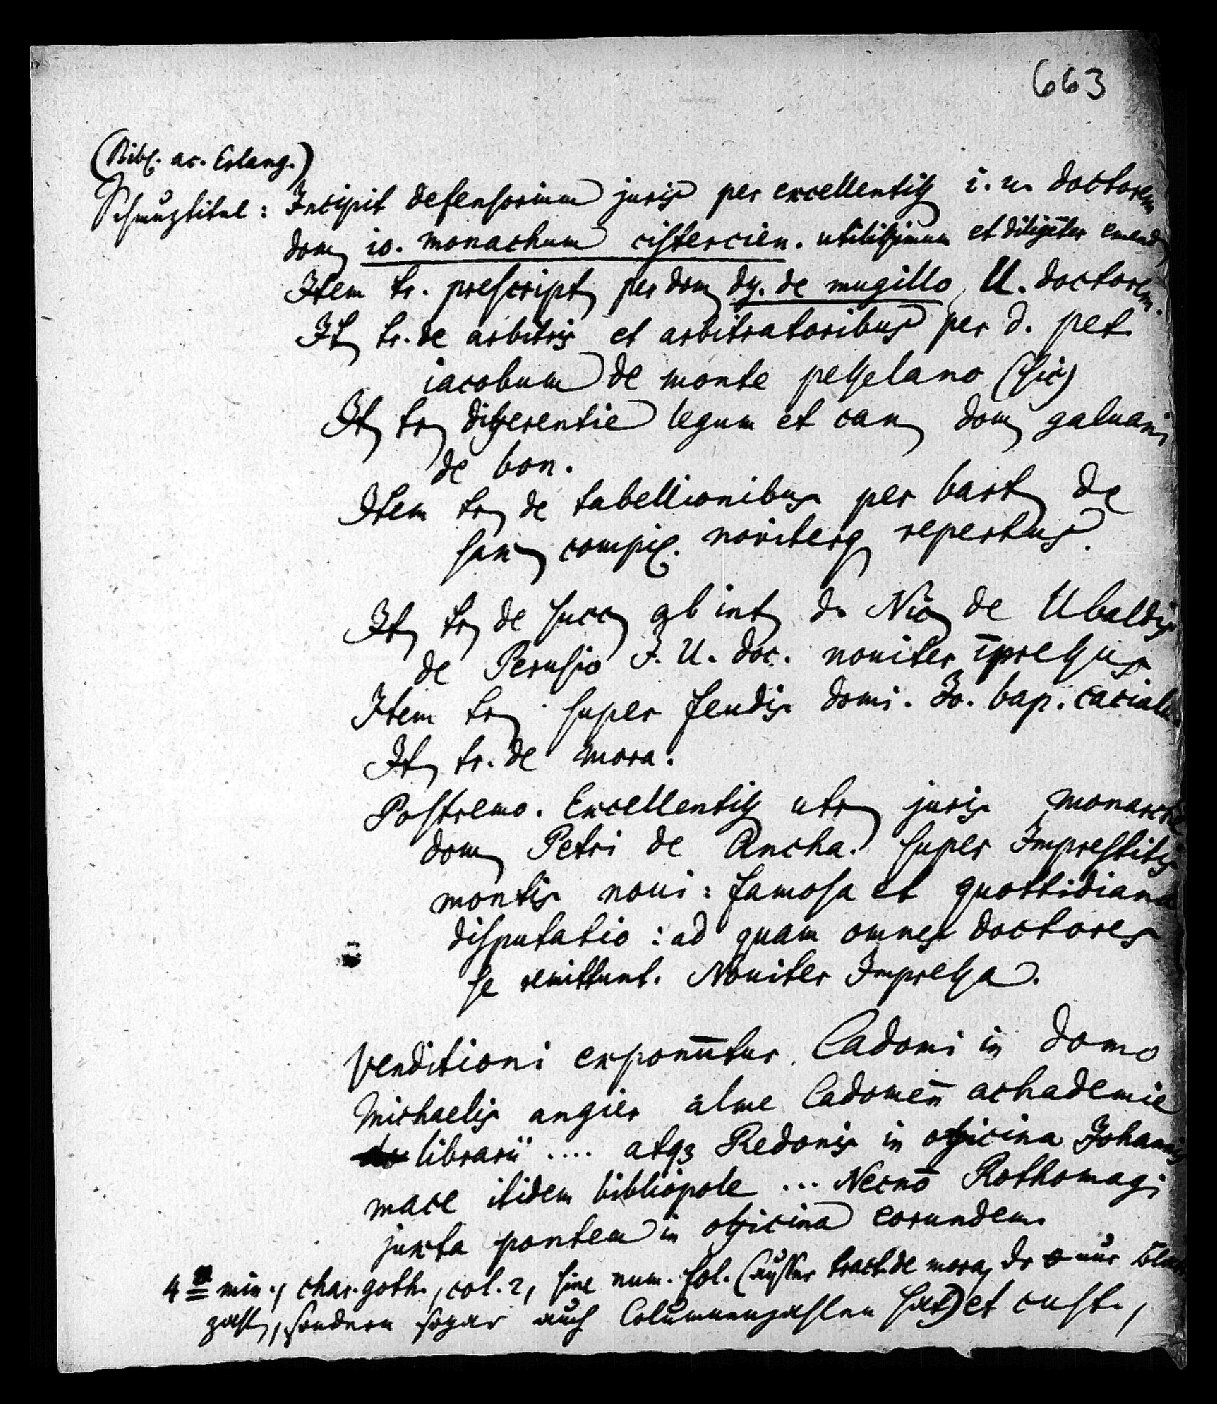 663
(Bibl. ac. Erlang.)
Schmutztitel: Incipit defensorium juris per excellentiss i. u. doctorem
dom io. monachum cistercien. utilissimum et diligēter emend
Item tr. prescript per dom dy. de mugillo U. doctorem.
It tr. de arbitris et arbitratoribus per d. pet
iacobum de monte pesselano (sic)
It tr differentie legum et can dom galuani
de bon.
Item tr de tabellionibus per bart de
sax compil. noviter repertus.
It tr de succ ab int d. Nic de Ubaldis
de Perusio J. U. doc. noviter īpressus
Item tr super feudis domi. Jo. bap. cacialu.
It tr. de mora.
Postremo. Excellentiss utr juris monarche
dom Petri de Ancha. super Imprestitis
montis noui: famosa et quottidiana
disputatio: ad quam omnes doctores
se remittunt. Nouiter Impressa.
Venditioni exponūtur Cadomi in domo
Michaelis angier alme Cadomeñ achademie
librarii .... atqz Redonis in officina Johannis
mace itidem bibliopole ... Necnō Rothomagi
juxta pontem in officina eorundem.
4º min., char. goth., col. 2, sine num. fol. (außer tract de mora, der nur
zahl, sondern sogar auch Columnenzahlen hat) et cust.,